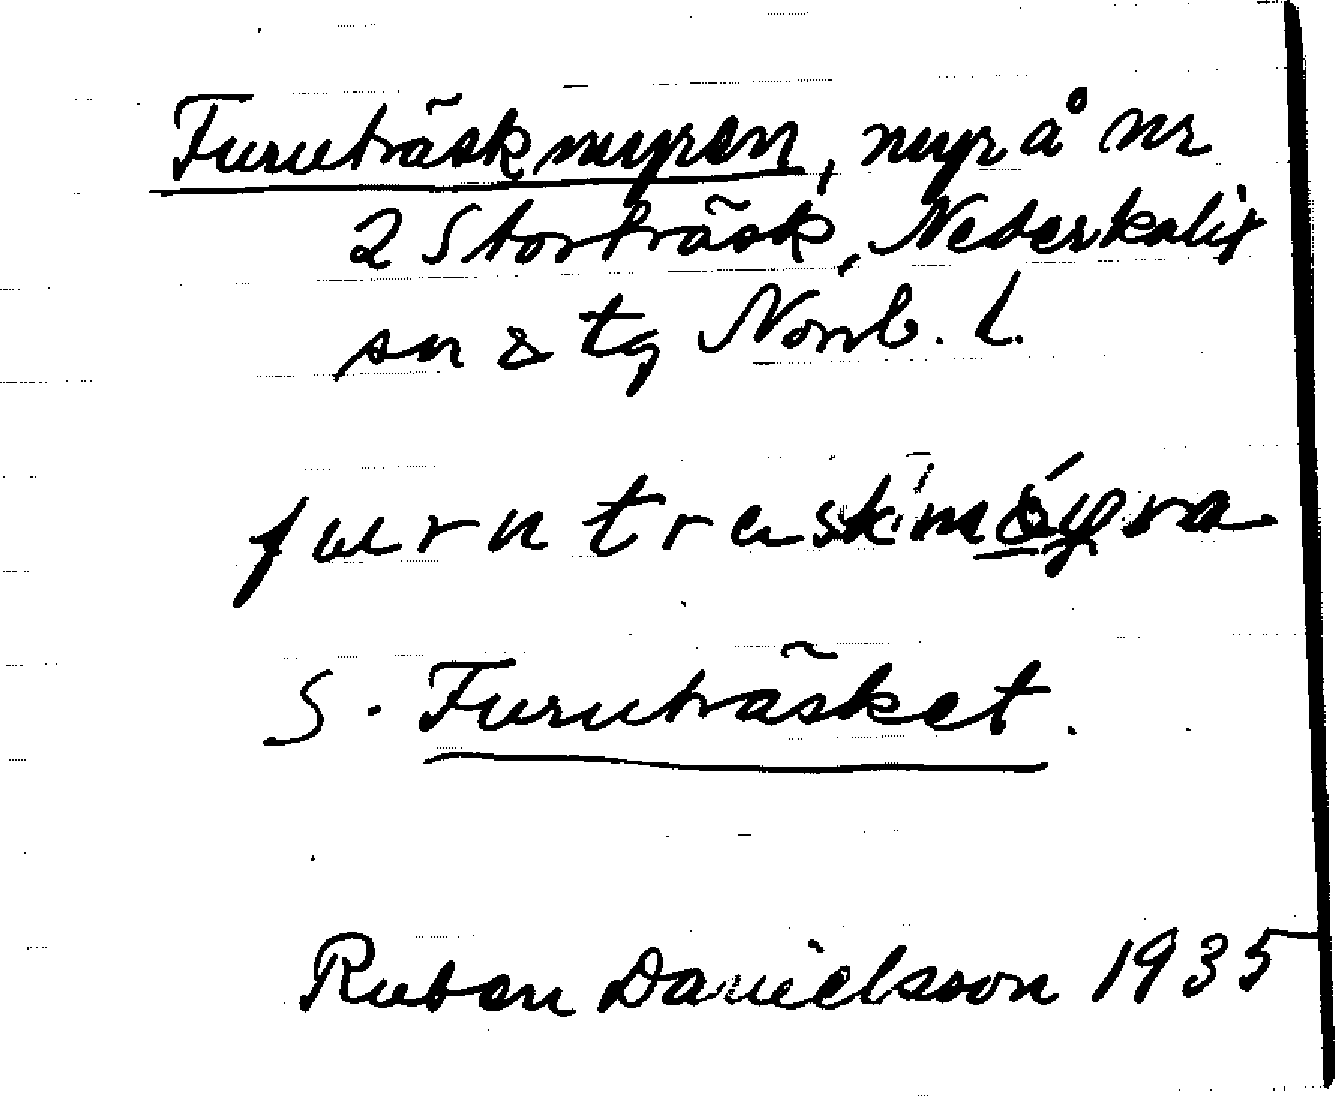 Furuträskmyren, myr å nr
2 Storträsk, Nederkalix
sn & tg Norrb. L.
furutraskmöyra
S. Furuträsket.
Ruben Danielsson 1935